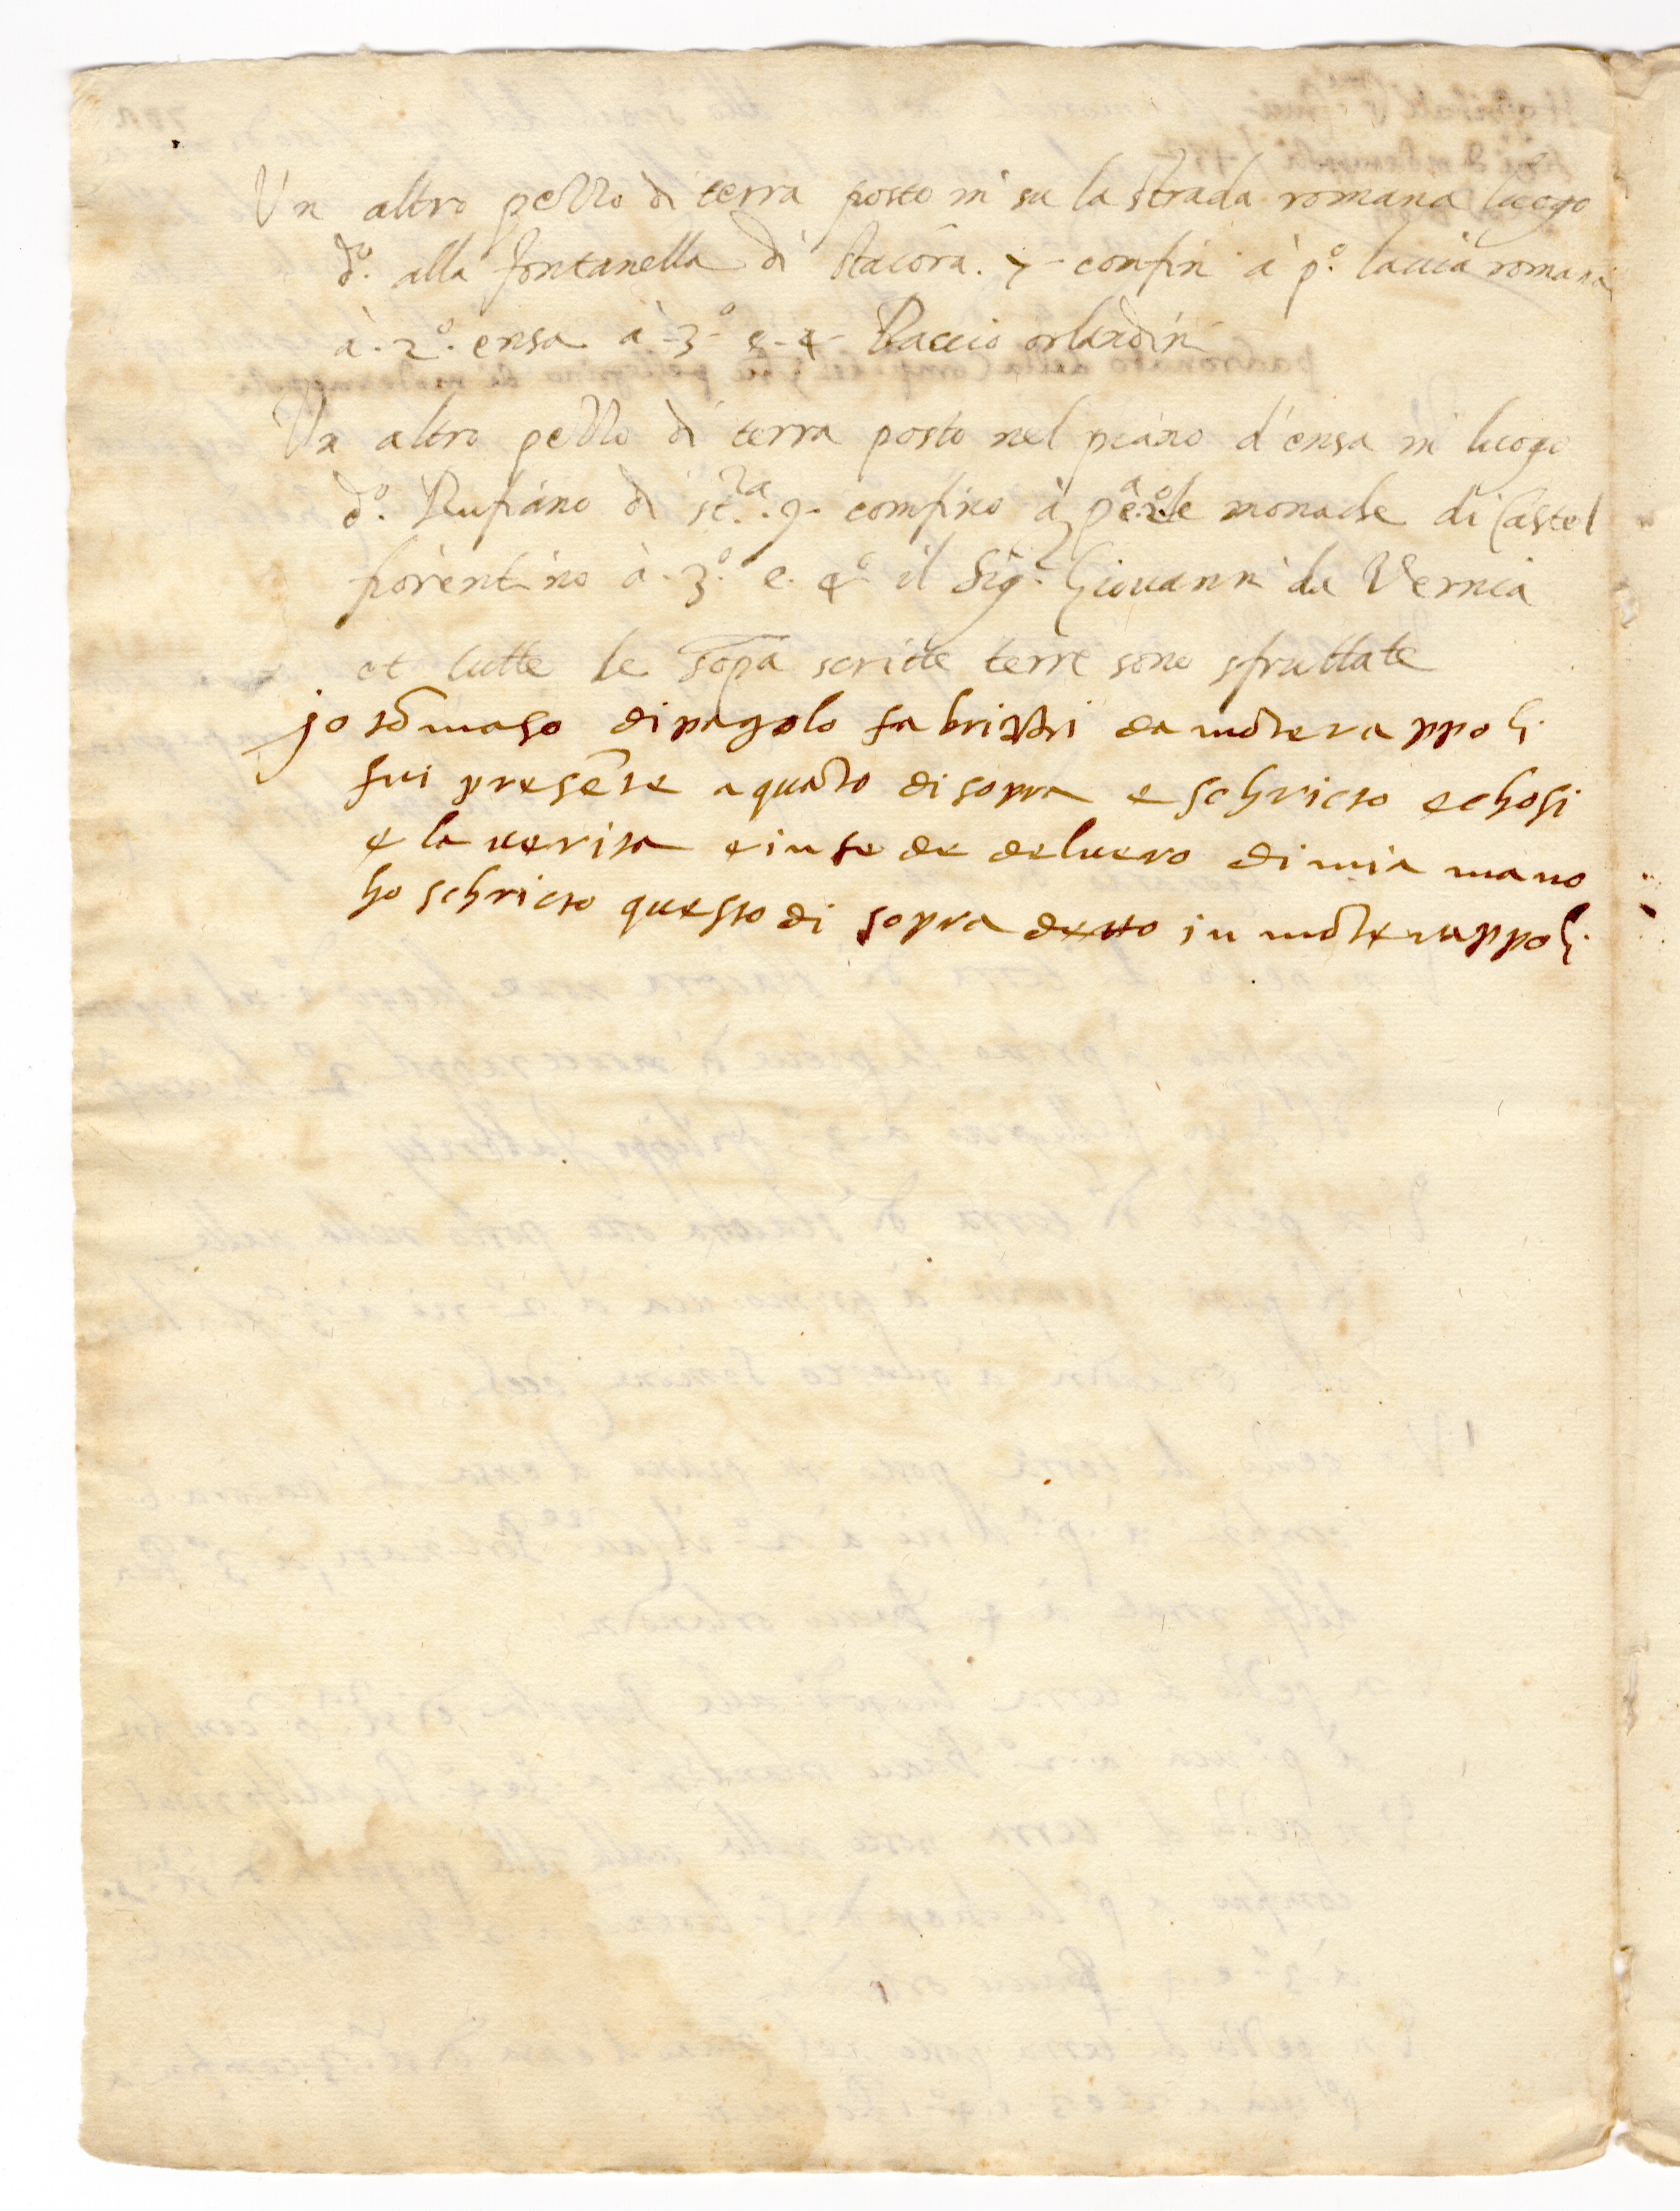 Un altro pezzo di terra posto in su la strada romana luogo
d.º alla fontanella di stacora. 7- confin à p.º la uia romana
à. 2.º. ensa à 3º e. 4 Baccio orlandin
Un altro pezzo di terra posto nel piano d'ensa in luogo
d.º Rufiano di st.ra 9- confino à p.º e 2º le monache di Castel
fiorentino à. 3.º e. 4º il Sig.r Giouanni da Vernia
et tutte le sopa scritte terre sono sfruttate
jo tõmaso di pagolo fabrizzi da mõterappoli
fui presẽte a quãto di sopra e schricto e chosi
e la uerita e in fe de del uero di mia mano
ho schricto questo di sopra detto in mõterappoli